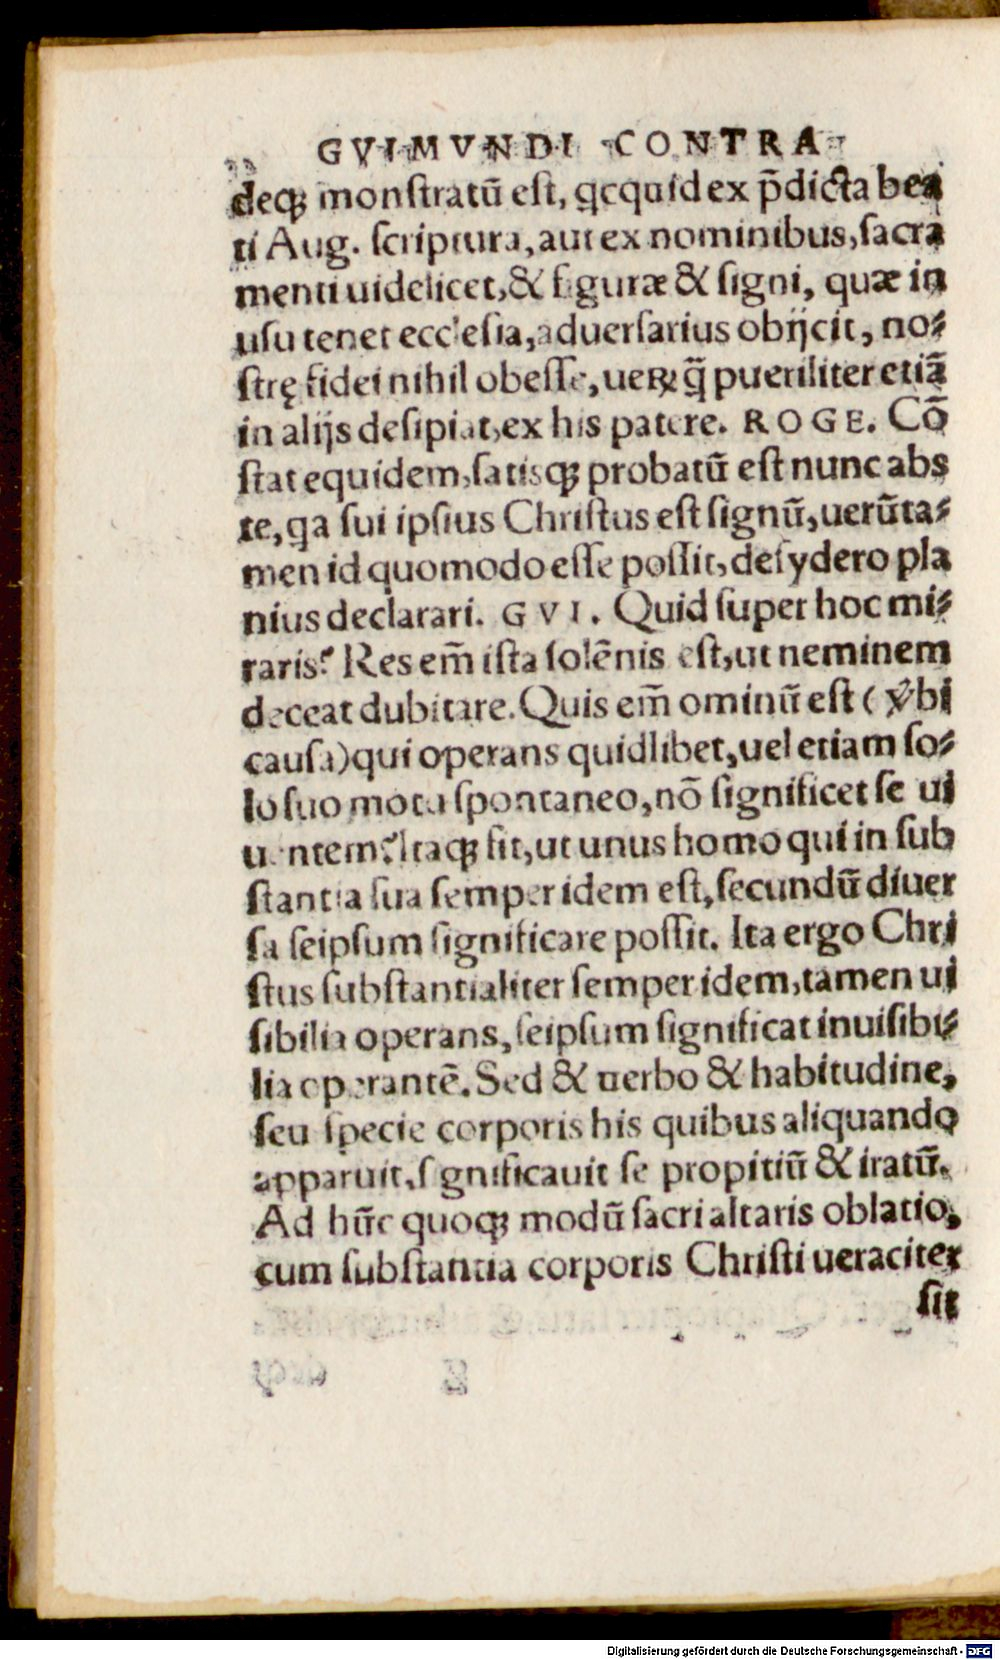 GVIMVNDI CONTRA
deqꝫ monſtratū eſt, qcquid ex p̄dicta bea
ti Aug. ſcriptura, aut ex nominibus, ſacra
menti uidelicet, & figuræ & ſigni, quæ in
uſu tenet eccleſia, aduerſarius obijcit, no⸗
ſtrę fidei nihil obeſſe, ueꝝ q̄ pueriliter etiā
in alijs deſipiat, ex his patere. ROGE. Cō
ſtat equidem, ſatisqꝫ probatū eſt nunc abs
te, qa ſui ipſius Chriſtus eſt ſignū, uerūta⸗
men id quomodo eſſe poſſit, deſydero pla
nius declarari. GVI. Quid ſuper hoc mi⸗
raris? Res em̄ iſta ſolēnis eſt, ut neminem
deceat dubitare. Quis em̄ ominū eſt (v̉bi
cauſa) qui operans quidlibet, uel etiam ſo⸗
lo ſuo motu ſpontaneo, nō ſignificet ſe ui
uentem? Itaqꝫ fit, ut unus homo qui in ſub
ſtantia ſua ſemper idem eſt, ſecundū diuer
ſa ſeipſum ſignificare poſſit. Ita ergo Chri
ſtus ſubſtantialiter ſemper idem, tamen ui
ſibilia operans, ſeipſum ſignificat inuiſibi⸗
lia operantē. Sed & uerbo & habitudine,
ſeu ſpecie corporis his quibus aliquando
apparuit, ſignificauit ſe propitiū & iratū.
Ad hūc quoqꝫ modū ſacri altaris oblatio,
cum ſubſtantia corporis Chriſti ueraciter
ſit
Digitalisierung gefördert durch die Deutsche Forschungsgemeinschaft - DFG